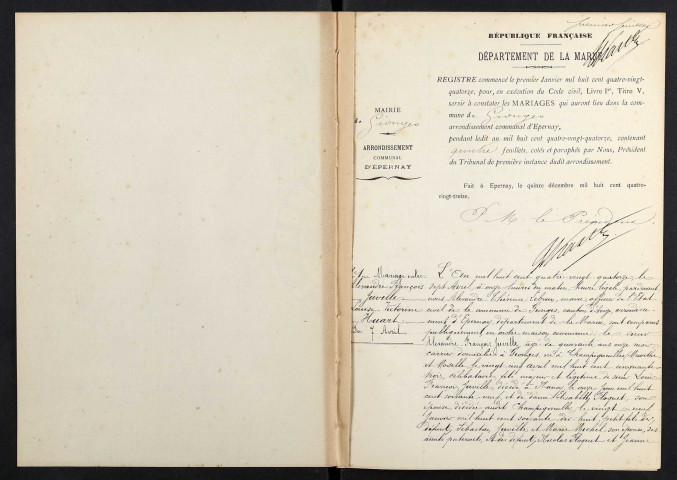 premier feuillet
RÉPUBLIQUE FRANÇAISE
DÉPARTEMENT DE LA MARNE
REGISTRE commencé le premier Janvier mil huit cent quatre-vingt-
quatorze, pour, en exécution du Code civil, Livre Ier, Titre V,
servir à constater les MARIAGES qui auront lieu dans la com-
mune de Gionges
arrondissement communal d'Epernay,
pendant ledit an mil huit cent quatre-vingt-quatorze, contenant
feuillets, cotés et paraphés par Nous, Président
du Tribunal de première instance dudit arrondissement.
Fait à Epernay, le quinze décembre mil huit cent quatre-
vingt-treize.
MAIRIE
de Gionges
ARRONDISSEMENT
COMMUNAL
D'ÉPERNAY
P. M. le Président
Mariage entre
Alexandre François
Juville
Victorine
Huart
Du 7 Avril
L'An mil huit cent quatre vingt quatorze, le
sept Avril, à onze heures du matin, heure légale, pardevant
nous Alexandre Etienne Lebrun, maire, officier de l'Etat
civil de la commune de Gionges, canton d'Avize, arrondisse-
ment d'Epernay, département de la Marne, ont comparu
publiquement en notre maison commune, le sieur
Alexandre François Juville, âgé de quarante ans,
domicilié à Gionges, né à Champigneulles, Meurthe
et Moselle, le vingt un avril mil huit cent cinquante
trois, célibataire, fils majeur et légitime de Louis
François Juville, décédé à le onze Juin mil huit
cent soixante neuf, et de dame Elisabeth Huguet, son
épouse décédée audit Champigneulle le vingt neuf
Janvier mil huit cent soixante dix huit, petit fils de
défunts Sébastien Juville, et Marie Michel son épouse, ses
aïeuls paternels, et des défunts Nicolas Huguet et Jeanne